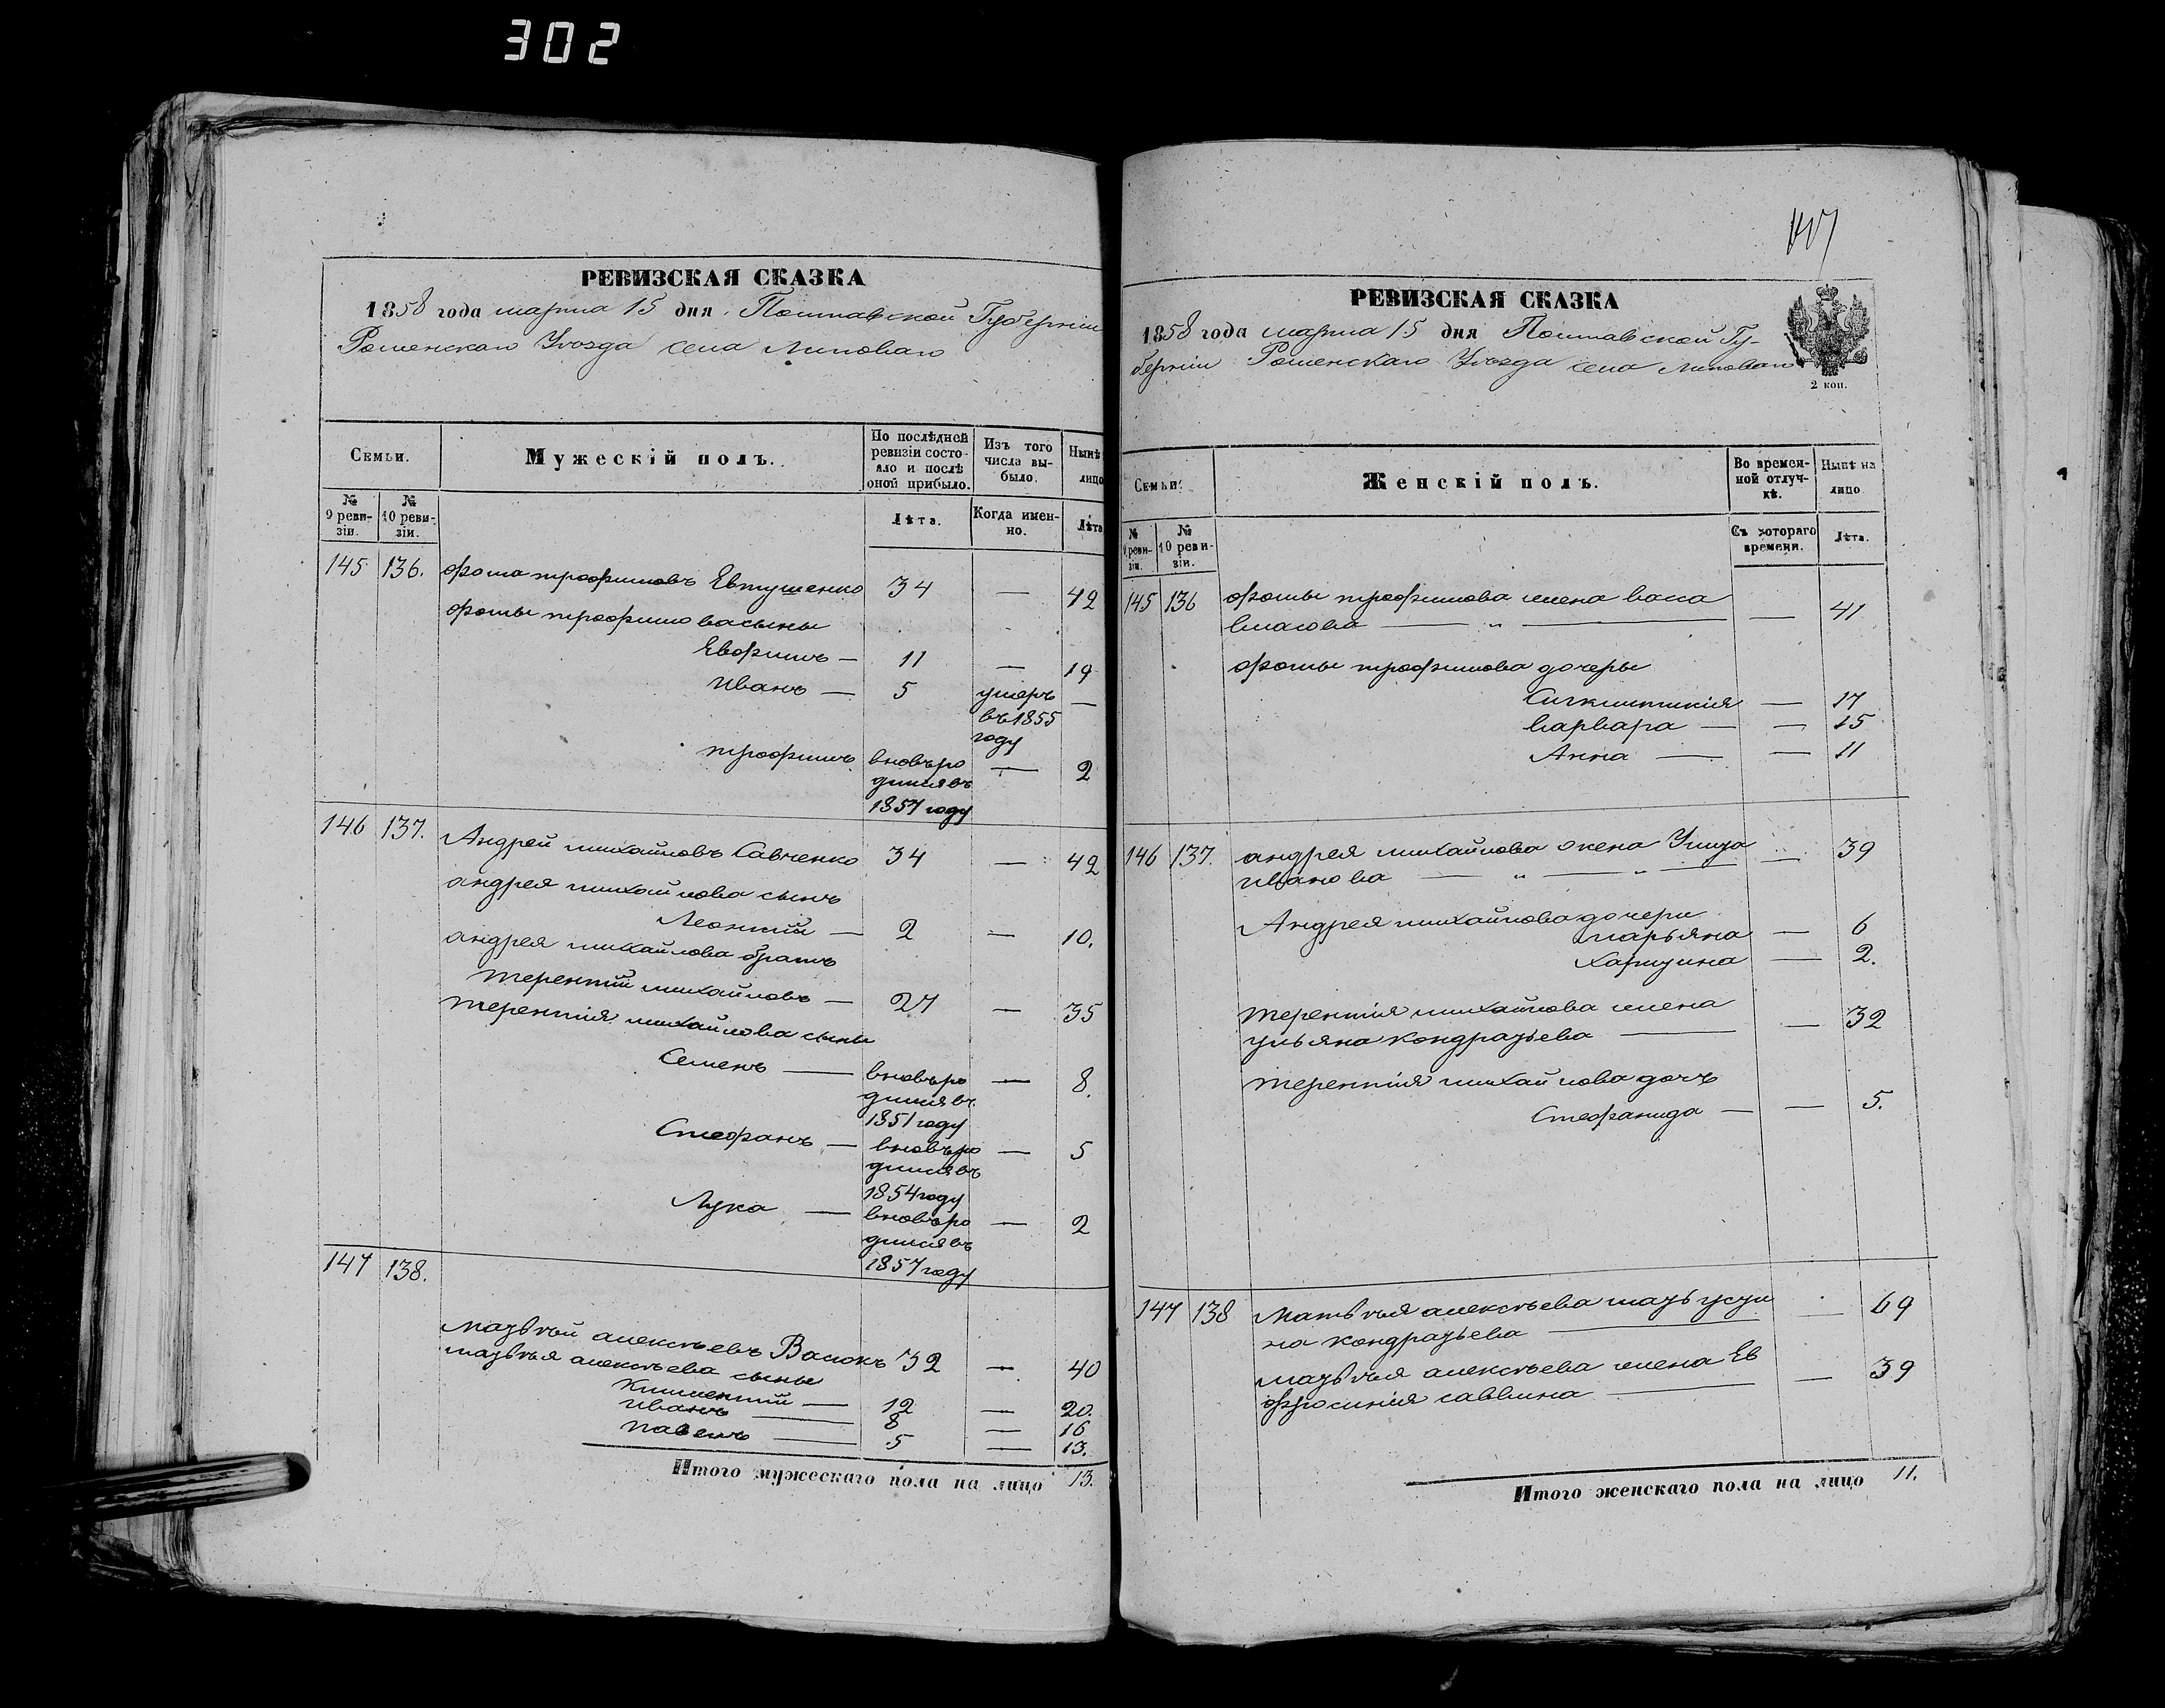 302
РЕВИЗСКАЯ СКАЗКА
1858 года марта 15 дня Полтавской Губерніи
Роменскаго Уѣзда села Липоваго
Семьи.
Мужескій полъ.
По послѣдней ревизіи состояло и послѣ оной прибыло.
Изъ того числа выбыло.
Нынѣ лицо
№ 9 ревизіи.
№ 10 ревизіи.
Лѣта.
Когда именно.
Лѣта
145 136. Фома трофимовъ Евтушенко 34 — 42
Фомы трофимова сыны
Евфимъ — 11 — 19
Иванъ — 5 умеръ —
въ 1855
году
трофимъ вновь ро — 2
дился въ
1857 году
146 137. Андрей михайловъ Савченко 34 — 42
андрея михайлова сынъ
Леонтій — 2 — 10.
андрея михайлова братъ
терентій михайловъ — 27 — 35
терентія михайлова сыны
Семенъ — вновь ро — 8.
дился въ
1851 году
Стефанъ — вновь ро — 5
дился въ
1854 году
Лука — вновь ро — 2
дился въ
1857 году
147 138.
матвѣй алексѣевъ Васюкъ 32 — 40
матвѣя алексѣева сыны
Климентій — 12 — 20.
Иванъ — 8 — 16
павелъ — 5 — 13.
Итого мужескаго пола на лицо 13.
107
РЕВИЗСКАЯ СКАЗКА
1858 года марта 15 дня Полтавской Гу-
берніи Роменскаго Уѣзда села Липоваго
2 коп.
Семьи.
Женскій полъ.
Во временной отлучкѣ.
Нынѣ на лицо
№ 9 ревизіи.
№ 10 ревизіи.
Съ котораго времени.
Лѣта.
145 136 Фомы трофимова жена васа
власова — „ — — 41
Фомы трофимова дочеры
Сигклитикія — 17
варвара — — 15
Анна — — 11
146 137. андрея михайлова жена Улита — 39
иванова — „ — „ —
Андрея михайлова дочери
марьяна — 6
Харитина — 2.
терентія михайлова жена
ульяна кондратьева — — 32
терентія михайлова дочь
Стефанида — — 5.
147 138 матвѣя алексѣева мать усти — 69
на кондратьева —
матвѣя алексѣева жена Ев — 39
фросинія саввина —
Итого женскаго пола на лицо 11.